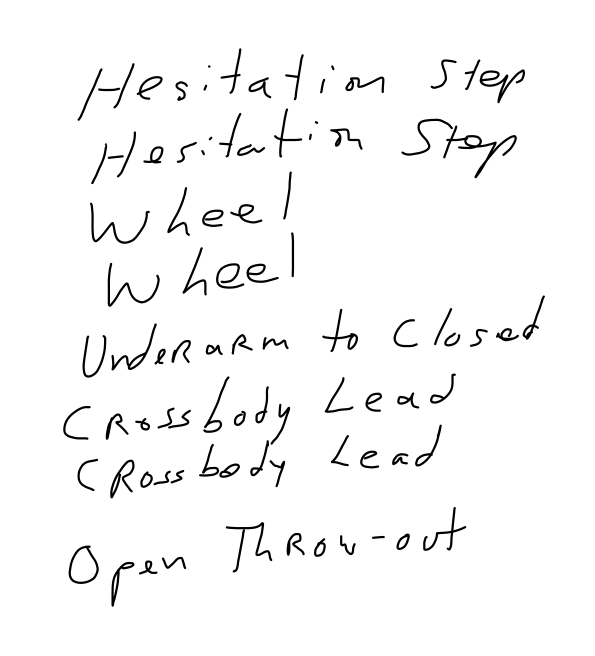 Hesitation Step
Hesitation Step
Wheel
Wheel
Underarm to Closed
Crossbody Lead
Crossbody Lead
Open Throw-out